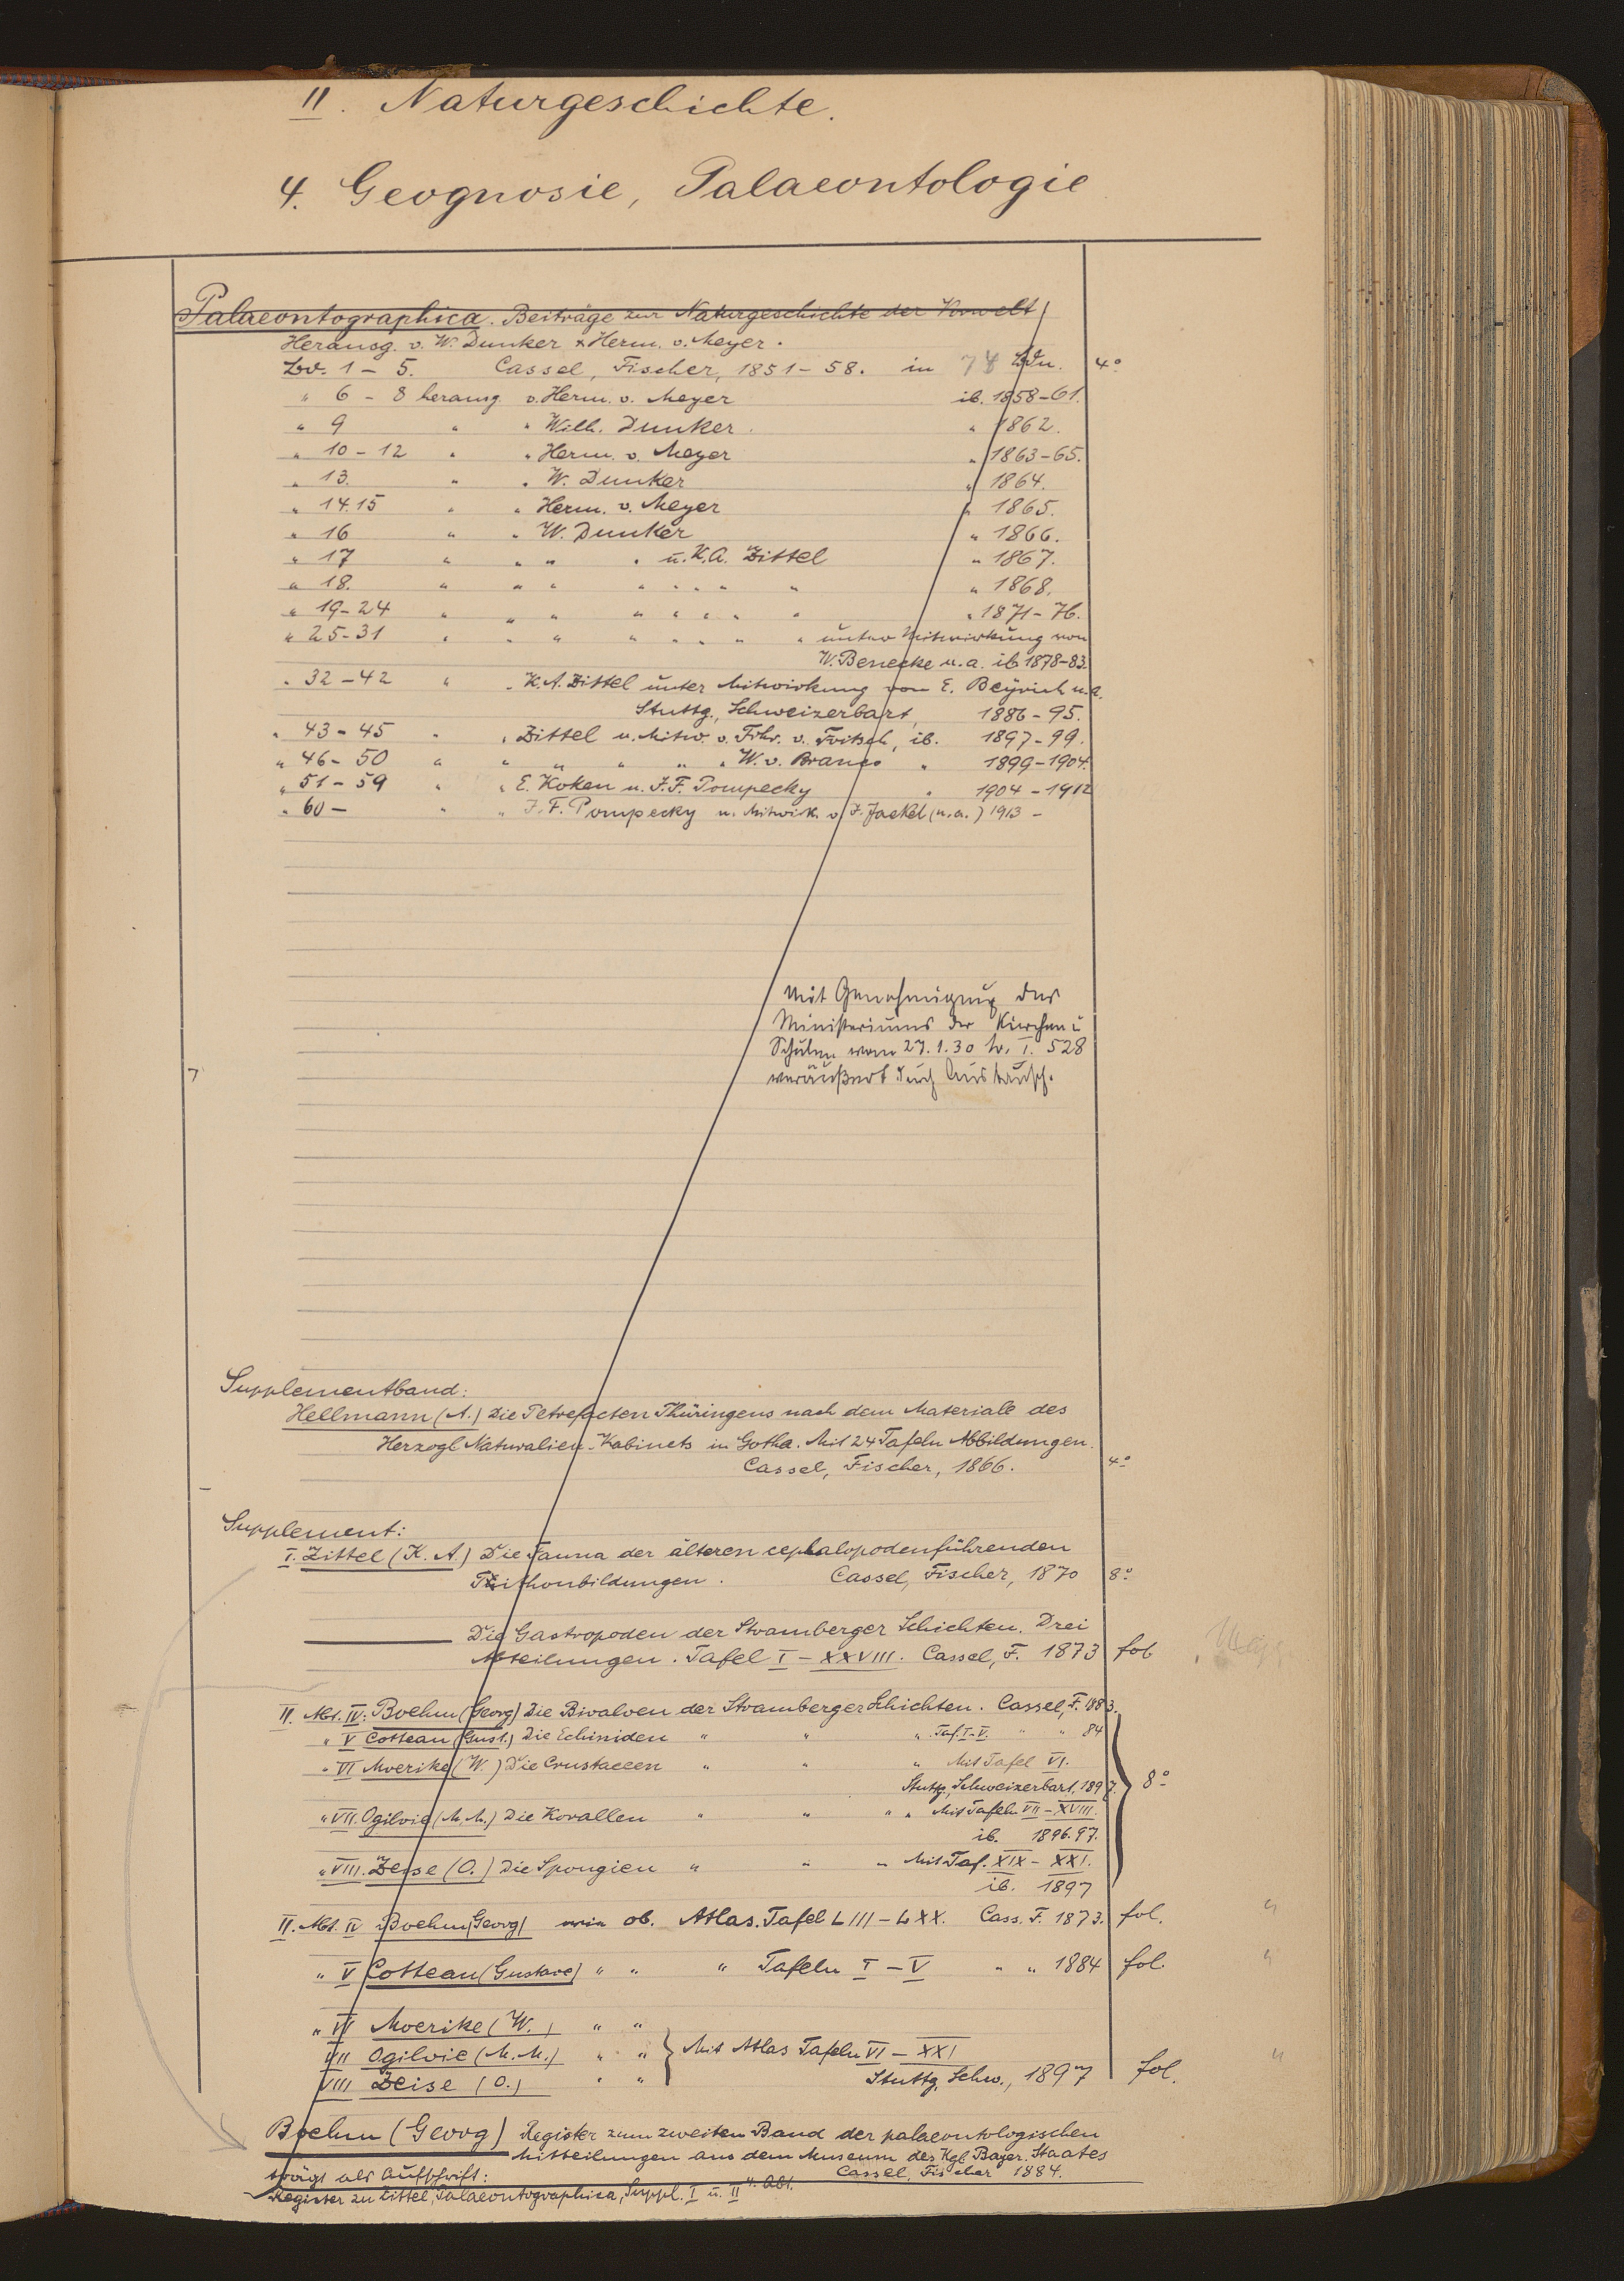 II. Naturgeschichte.
4. Geognosie, Palaeontologie
Palaeontographica. Beiträge zur Naturgeschichte der Vorwelt
Herausg. v. W. Dunker & Herm. v. Meyer.
Bd. 1 – 5. Cassel, Fischer, 1851–58. in Bdn. 4°
" 6 – 8 herausg. v. Herm. v. Meyer ib. 1858–61.
" 9 " " Wilh. Dunker. " 1862.
" 10–12 " " Herm. v. Meyer " 1863–65.
" 13. " " W. Dunker " 1864.
" 14.15 " " Herm. v. Meyer " 1865.
" 16 " " W. Dunker " 1866.
" 17 " " " " u. K.A. Zittel " 1867.
" 18. " " " " " " " " 1868.
" 19–24 " " " " " " " " 1871–76.
" 25–31 " " " " " " " " unter Mitwirkung von
W. Benecke u.a. ib 1878–83.
" 32–42 " " K.A. Zittel unter Mitwirkung von E. Beyrich u.a.
Stuttg., Schweizerbart, 1886–95.
" 43–45 " " Zittel u. Mitw. v. Frhr. v. Fritsch, ib. 1897–99.
" 46–50 " " " " " W. v. Branco " 1899–1904.
" 51–59 " " E. Koken u. J.F. Pompecky " 1904–1912
" 60– " " J.F. Pompecky u. Mitwirk. v. J. Jaekel (u.a.) 1913 –
Mit Genehmigung des
Ministeriums der Kirchen u
Schulen vom 27.1.30 Nr. I. 528
veräußert durch Austausch.
Supplementband:
Hellmann (A.) Die Petrefacten Thüringens nach dem Materiale des
Herzogl Naturalien-Kabinets in Gotha. Mit 24 Tafeln Abbildungen.
Cassel, Fischer, 1866. 4°
Supplement:
I. Zittel (K. A.) Die Fauna der älteren cephalopodenführenden
Tithonbildungen. Cassel, Fischer, 1870 8°
Die Gastropoden der Stramberger Schichten. Drei
Abteilungen. Tafel I – XXVIII. Cassel, F. 1873 fol
II. Abt. IV: Boehm (Georg) Die Bivalven der Stramberger Schichten. Cassel, F. 1883.
" V Cotteau (Gust.) Die Echiniden " " " Taf. I–V. " " 84
" VI Moerike (W.) Die Crustaceen " " " Mit Tafel VI.
Stuttg., Schweizerbart, 1897. 8°
" VII. Ogilvie (M.M.) Die Korallen " " " " Mit Tafeln VII – XVIII.
ib. 1896.97.
" VIII. Zeise (O.) Die Spongien " " " Mit Taf. XIX – XXI.
ib. 1897
II. Abt. IV Boehm (Georg) wie ob. Atlas. Tafel LIII – LXX. Cass. F. 1873. fol. "
" V Cotteau (Gustave) " " " Tafeln I – V " " 1884 fol. "
" IV Moerike (W.) " "
VII Ogilvie (M.M.) " " Mit Atlas Tafeln VI – XXI "
VIII Zeise (O.) " " Stuttg. Schw., 1897 fol.
Boehm (Georg) Register zum zweiten Band der palaeontologischen
Mitteilungen aus dem Museum des Kgl Bayer. Staates
Cassel, Fischer 1884.
trägt als Aufschrift:
Register zu Zittel, Palaeontographica, Suppl. I u. II. Abt.